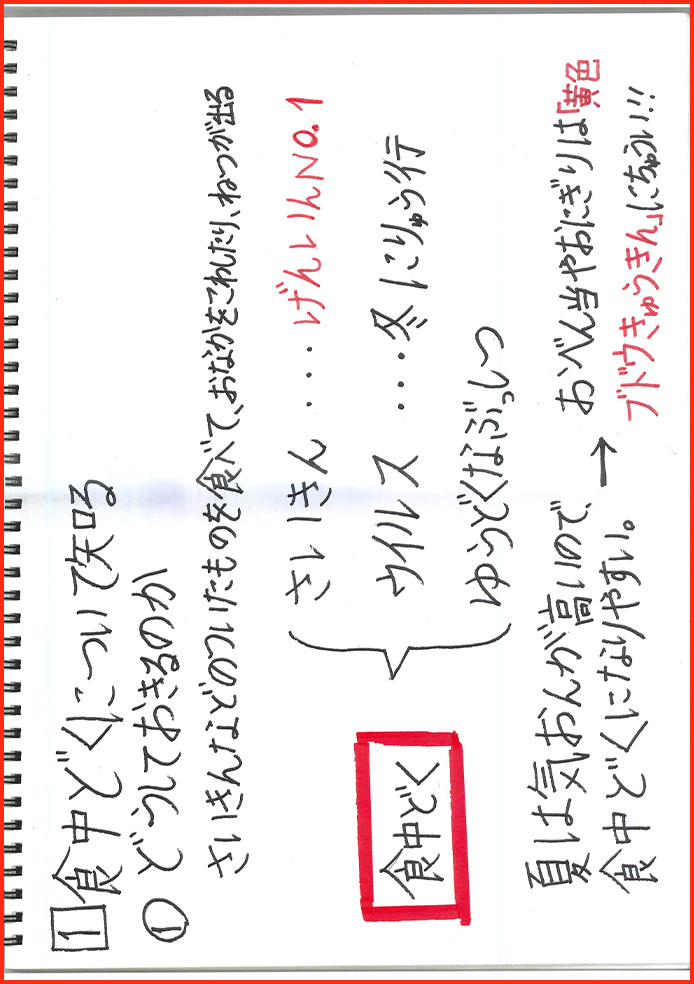 1 食中どくについて知る
① どうしておきるのか
さいきんなどのついたものを食べて、おなかをこわしたり、ねつが出る
さいきん ・・・ げんいんNO.1
食中どく
ウイルス ・・・ 冬にりゅう行
ゆうどくなぶっしつ
夏は気おんが高いので、
食中どくになりやすい。
→ おべん当やおにぎりは「黄色
ブドウきゅうきん」にちゅうい!!